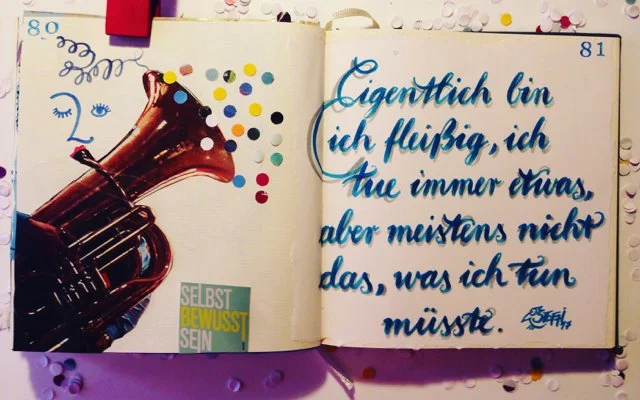 80
SELBST
BEWUSST
SEIN!
81
Eigentlich bin
ich fleißig, ich
tue immer etwas,
aber meistens nicht
das, was ich tun
müsste.